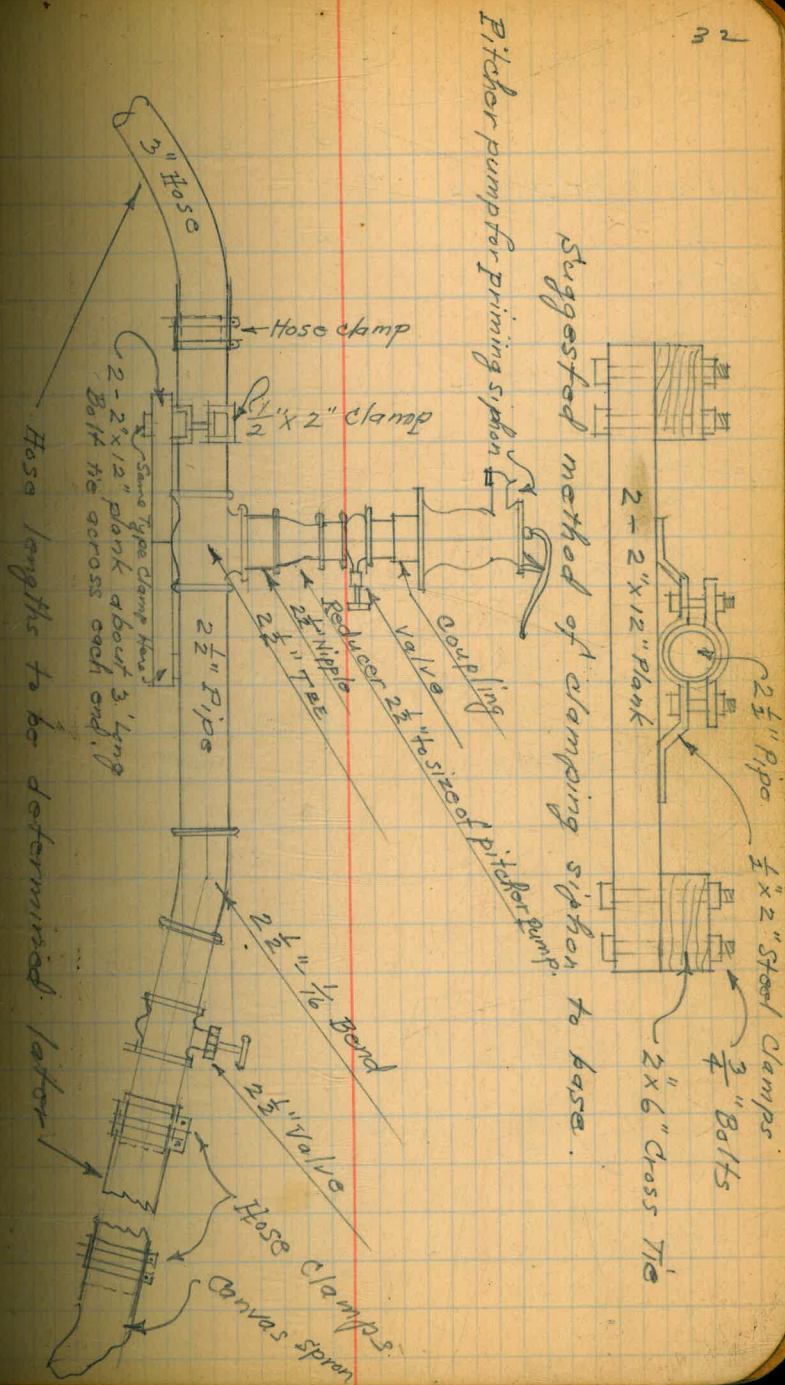 32
2½" Pipe
½" x 2" Steel Clamps
¾" Bolts
2" x 6" Cross Tie
2 - 2" x 12" Plank
Suggested method of clamping siphon to base.
Pitcher pump for priming siphon
coupling
valve
Reducer 2½" to size of pitcher pump.
2½" Nipple
2½" TEE
3" Hose
Hose clamp
½" x 2" clamp
Same Type Clamp Here
2 - 2" x 12" plank about 3' long
Bolt tie across each end.
2½" Pipe
2½", 1/16 Bend
2½" Valve
Hose Clamps.
Canvas
Hose lengths to be determined later